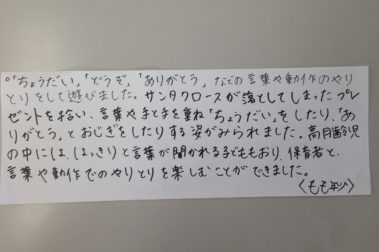 ○「ちょうだい」「どうぞ」「ありがとう」などの言葉や動作のやり
とりをして遊びました。サンタクロースが落としてしまったプレ
ゼントを拾い、言葉や手と手を重ね「ちょうだい」をしたり、「あ
りがとう」とおじぎをしたりする姿がみられました。高月齢児
の中には、はっきりと言葉が聞かれる子どももおり、保育者と、
言葉や動作でのやりとりを楽しむことができました。